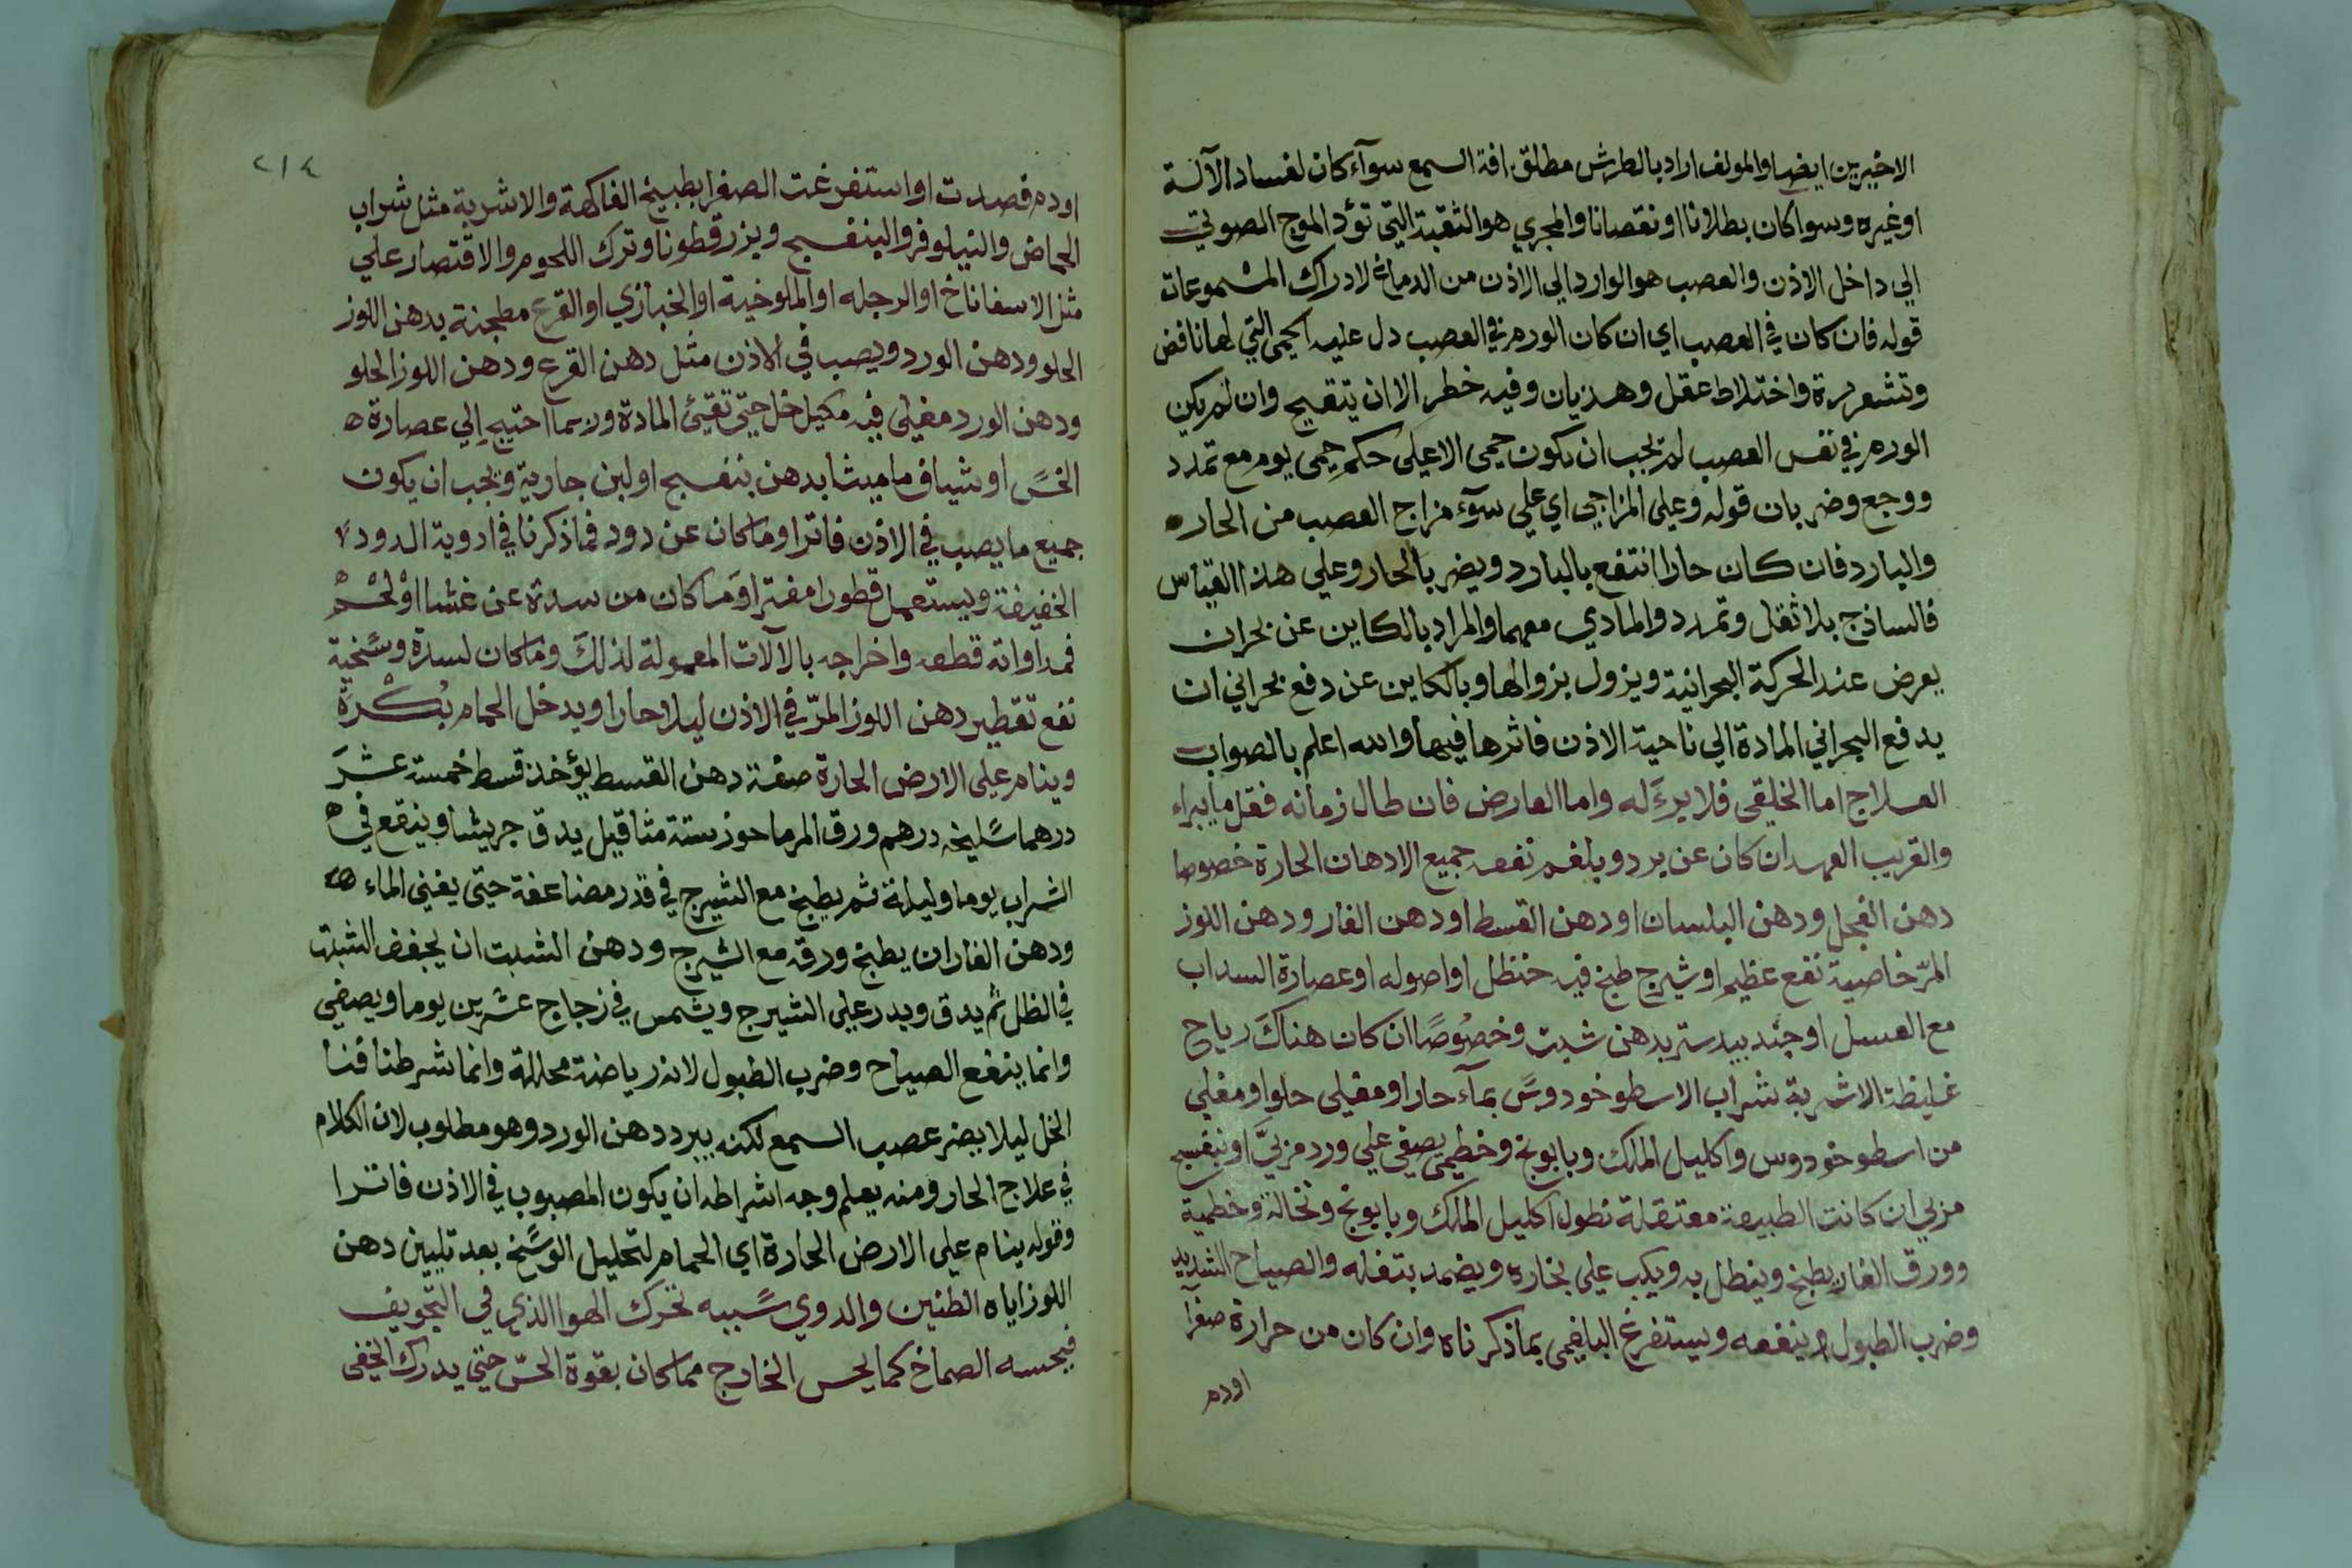 الاخيرين ايضا والمولف اراد بالطرش مطلق افة السمع سوآء كان لفساد الآلة
اوغيره وسوا كان بطلانا اونقصانا والمجري هو الثقبة التي تؤد الموج الصوتي
الي داخل الاذن والعصب هو الوارد الي الاذن من الدماغ لادراك المسموعات
قوله فان كان في العصب اي ان كان الورم في العصب دل عليه الحمى التي لها نافض
وقشعريرة واختلاط عقل وهذيان وفيه خطر الا ان يتقيح وان لم يكن
الورم في نفس العصب لم يجب ان يكون حمى الا علي حكم حمى يوم مع تمدد
ووجع وضربان قوله وعلى المزاجي اي علي سوٓء مزاج العصب من الحار
والبارد فان كان حارا انتفع بالبارد ويضر بالحار وعلي هذا القياس
فالساذج بلا ثقل وتمدد والمادي معهما والمراد بالكاين عن بحران
يعرض عند الحركة البحرانية ويزول بزوالها وبالكاين عن دفع بحراني ان
يدفع البحراني المادة الي ناحية الاذن فاثرها فيها والله اعلم بالصواب
العلاج اما الخلقي فلا برءَ له واما العارض فان طال زمانه فقل ما يبراء
والقريب العهد ان كان عن برد وبلغم نفعه جميع الادهان الحارة خصوصا
دهن الفجل ودهن البلسان او دهن القسط او دهن الغار ودهن اللوز
المرّ خاصية نفع عظيم او شيرج طبخ فيه حنظل او اصوله او عصارة السداب
مع العسل او جند بيدستر بدهن شبت وخصُوصًا ان كان هناكَ رياح
غليظة الاشربة شراب الاسطوخودوس بمآء حار او مغلي حلو او مغلي
من اسطوخودوس واكليل الملك وبابونج وخطمي يصفي علي ورد مربيَّ او بنفسج
مربي ان كانت الطبيعة معتقلة نطول اكليل الملك وبابونج ونخالة وخطمية
وورق الغار يطبخ وينطل به ويكب علي بخاره ويضمد بتفله والصياح الشديد
وضرب الطبول لا ينفعه ويستفرغ البلغمي بما ذكرناه وان كان من حرارة صفرآ
اودم
٢١٤
اودم فصدت او استفرغت الصفرا بطبيخ الفاكهة والاشربة مثل شراب
الحماض والنيلوفر والبنفسج وبزر قطونا وترك اللحوم والاقتصار علي
مثل الاسفاناخ او الرجله او الملوخية او الخبازي او القرع مطجنة بدهن اللوز
الحلو ودهن الورد ويصب في الاذن مثل دهن القرع ودهن اللوز الحلو
ودهن الورد مغلي فيه خل حتى المادة احتيج الي عصارة
الخسّ او شياف ماميثا بدهن بنفسج او لبن جارية ويجب ان يكون
جميع ما يصب في الاذن فاترا وما كان عن دود فما ذكرنا في ادوية الدود
الخفيفة ويستعمل قطورا مفترا وَما كان من سدة عن غشا اوْ لحْم
فمداواته قطعه واخراجه بالآلات المعمولة لذلكَ وما كان لسدة وسَخية
نفع تقطير دهن اللوز المرّ في الاذن ليلا حارا ويدخل الحمام بُكْرَة
وينام علي الارض الحارة صفة دهن القسط يؤخذ قسط خمسة عشرَ
درهما سليخه درهم ورق المرماحوز ستة مثاقيل يدق جريشا وينقع في
الشراب يوما وليلة ثم يطبخ مع الشيرج في قدر مضاعفة حتى يفني الماء
ودهن الغار ان يطبخ ورقه مع الشيرج ودهن الشبت ان يجفف الشبت
في الظل ثم يدق ويدر علي الشيرج ويشمس في زجاج عشرين يوما ويصفي
وانما ينفع الصياح وضرب الطبول لانه رياضة محللة وانما شرطنا فنا
الخل ليلا يضر عصب السمع لكنه يبرد دهن الورد وهو مطلوب لان الكلام
في علاج الحار ومنه يعلم وجه اشراطه ان يكون المصبوب في الاذن فاترا
وقوله ينام علي الارض الحارة اي الحمام لتحليل الوسخ بعد تليين دهن
اللوز اياه الطنين والدوي سَببه تحرك الهوا الذي في التجويف
فيحسه الصماخ كما يحس الخارج مما كان بقوة الحسّ حتي يدرك الخفى